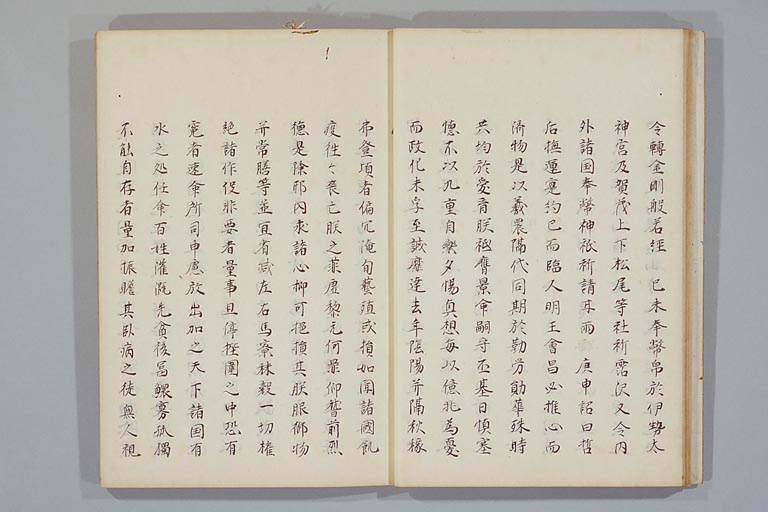 令轉金剛般若經 己未奉幣帛於伊勢太
神宮及賀茂上下松尾等社祈霈沢又令内
外諸国奉幣神祇祈請甘雨 庚申詔曰哲
后撫運寔約己而臨人明王會昌必推心而
済物是以羲農隔代同期於勤労勛華殊時
共均於愛育朕祗膺景命嗣守丕基日慎塞
德不以九重自樂夕惕興想每以億兆為憂
而政化未孚至誠靡達去年陰陽并隔秋稼
弗登項者偏亢淹旬藝殖或損如聞諸國飢
疫往々喪亡朕之菲虐黎元何罪仰瞽前烈
德是除邪内求諸心抑可挹損其朕服御物
并常膳等並宜省減左右馬寮秣穀一切権
絶諸作役非要者量事且停狴圄之中恐有
冤者速命所司申慮放出加之天下諸国有
水之処任令百姓灌漑先貧後冨鰥寡孤獨
不能自存者量加振贍其臥病之徒無人視